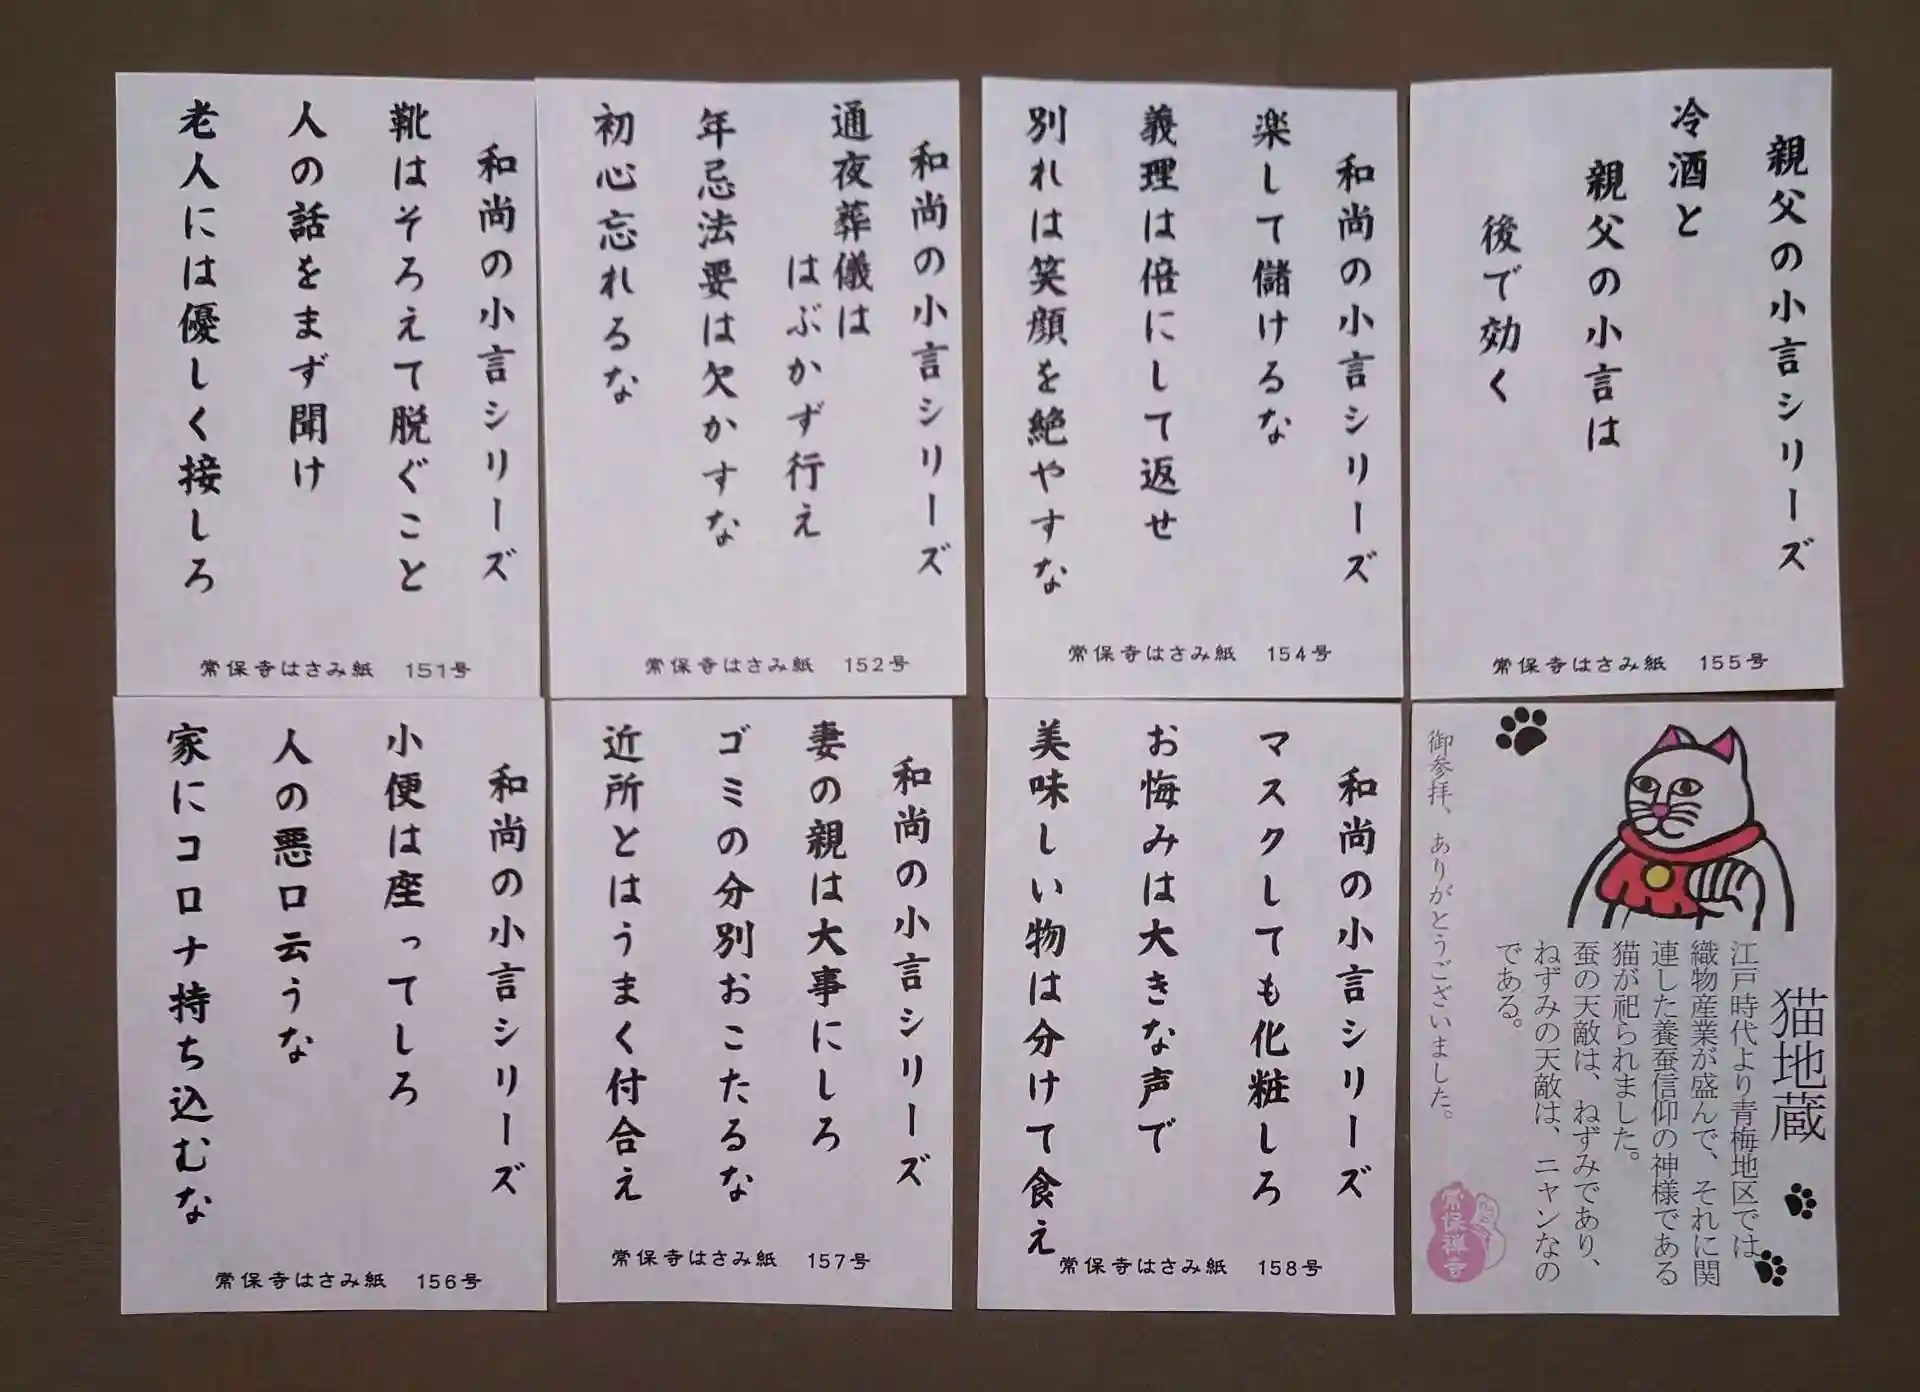 和尚の小言シリーズ
靴はそろえて脱ぐこと
人の話をまず聞け
老人には優しく接しろ
常保寺はさみ紙 151号
和尚の小言シリーズ
通夜葬儀は
はぶかず行え
年忌法要は欠かすな
初心忘れるな
常保寺はさみ紙 152号
和尚の小言シリーズ
楽して儲けるな
義理は倍にして返せ
別れは笑顔を絶やすな
常保寺はさみ紙 154号
親父の小言シリーズ
冷酒と
親父の小言は
後で効く
常保寺はさみ紙 155号
和尚の小言シリーズ
小便は座ってしろ
人の悪口云うな
家にコロナ持ち込むな
常保寺はさみ紙 156号
和尚の小言シリーズ
妻の親は大事にしろ
ゴミの分別おこたるな
近所とはうまく付合え
常保寺はさみ紙 157号
和尚の小言シリーズ
マスクしても化粧しろ
お悔みは大きな声で
美味しい物は分けて食え
常保寺はさみ紙 158号
猫地蔵
江戸時代より青梅地区では
織物産業が盛んで、それに関
連した養蚕信仰の神様である
猫が祀られました。
蚕の天敵は、ねずみであり、
ねずみの天敵は、ニャンなの
である。
御参拝、ありがとうございました。
常保禅寺